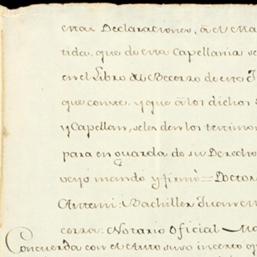 estas Declaraciones, â el Ma
tida, que de esta Capellanìa se
en el Libro de Becerro de este J
que conste, y que â los dichos
y Capellan, seles den los testimon
para en guarda de su Derecho
veyò mando y firmò = Doctor
Antemi: Bachiller Juan
corra: Notario Oficial Ma
Concuerda con el Auto suso incerto q